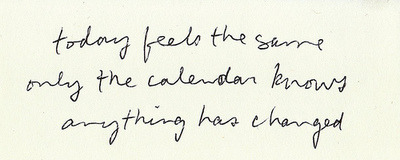 today feels the same
only the calendar knows
anything has changed